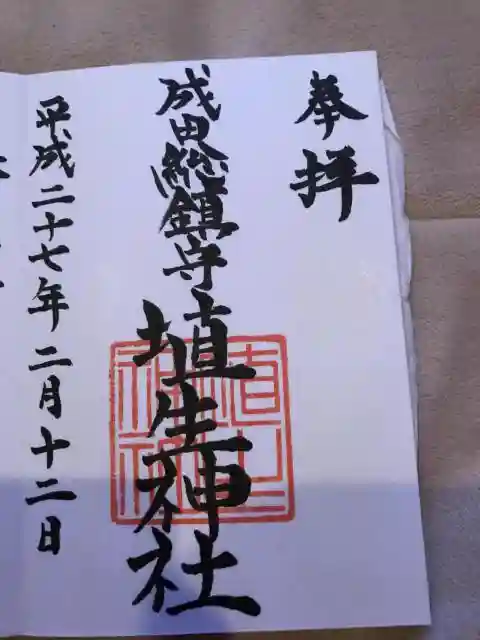 奉拝
成田総鎮守 埴生神社
平成二十七年二月十二日